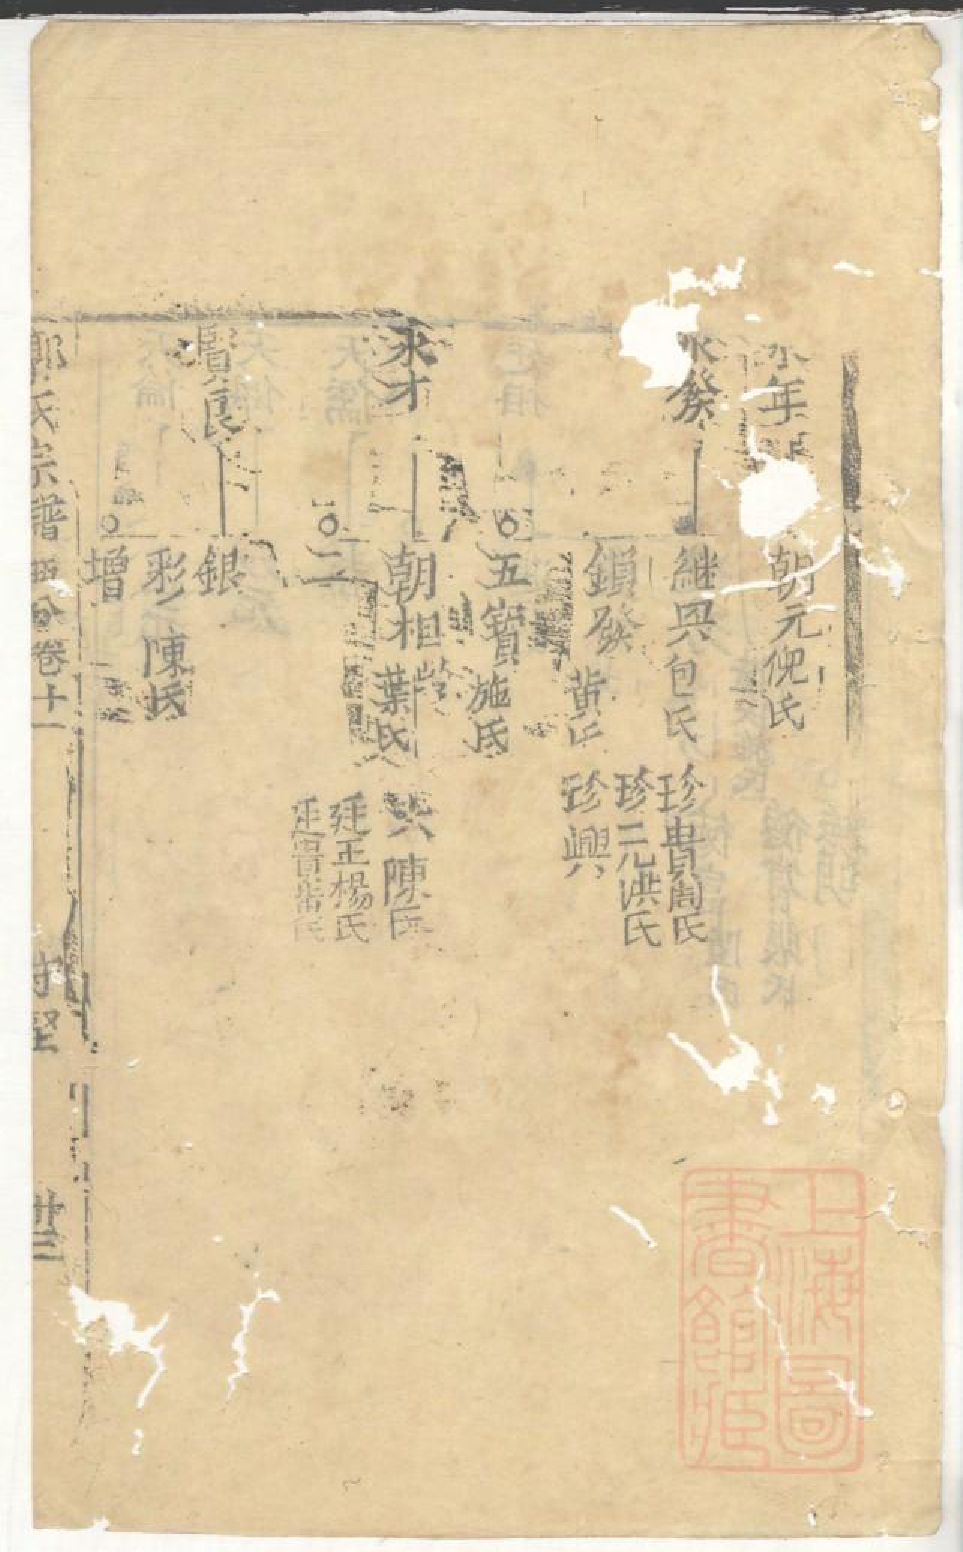 永年
朝元倪氏
永發
継興包氏
珍貴周氏
珍元洪氏
鎖發黄氏
珍興
五寳施氏
永才
朝相葉氏
陳氏
廷正楊氏
廷貴
二
良
銀
彩陳氏
增
氏宗譜
卷十一
守堅
卅三
上海圖書館藏